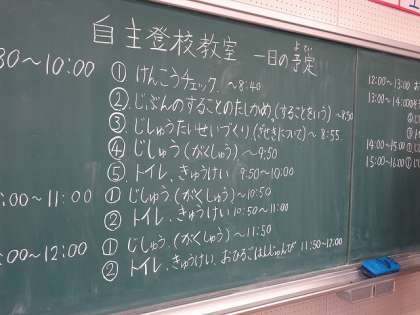 自主登校教室 一日の予定
よてい
30〜10:00 ① けんこうチェック. 〜8:40
② じぶんのすることのたしかめ (することをいう) 〜8:50
③ じしゅうたいせいづくり (ざせきについて) 〜 8:55
④ じしゅう (がくしゅう) 〜9:50
⑤ トイレ. きゅうけい 9:50〜10:00
:00〜11:00 ① じしゅう. (がくしゅう) 〜10:50
② トイレ. きゅうけい 10:50〜11:00
:00〜12:00 ① じしゅう. (がくしゅう) 〜11:50
② トイレ. きゅうけい. おひるごはんじゅんび 11:50〜12:00
12:00〜13:00 お
13:00〜14:00
14:00〜15:00 ①
15:00〜16:00 ①